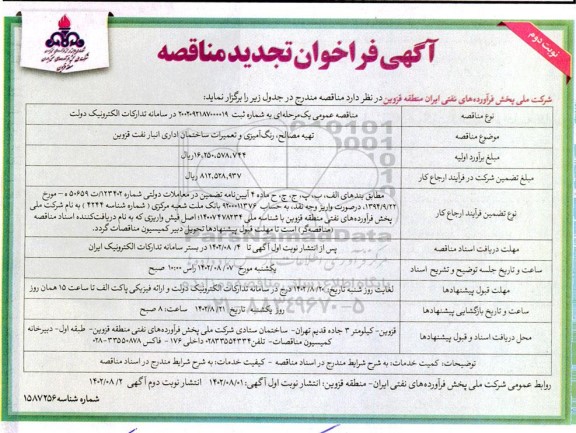 نوبت دوم
آگهی فراخوان تجدید مناقصه
شرکت ملی پخش فرآورده‌های نفتی ایران منطقه قزوین در نظر دارد مناقصه مندرج در جدول زیر را برگزار نماید:
نوع مناقصه
مناقصه عمومی یک‌مرحله‌ای به شماره ثبت ۲۰۰۲۰۹۲۱۸۷۰۰۰۰۱۹ در سامانه تدارکات الکترونیک دولت
موضوع مناقصه
تهیه مصالح، رنگ‌آمیزی و تعمیرات ساختمان اداری انبار نفت قزوین
مبلغ برآورد اولیه
۱۶,۲۵۰,۵۷۸,۷۴۴ ریال
مبلغ تضمین شرکت در فرآیند ارجاع کار
۸۱۲,۵۲۸,۹۳۷ ریال
نوع تضمین فرآیند ارجاع کار
مطابق بندهای الف، ب، پ، ج، چ، ح ماده ۴ آیین‌نامه تضمین در معاملات دولتی شماره ۱۲۳۴۰۲/ت ۵۰۶۵۹ ه – مورخ
۱۳۹۴/۹/۲۲. درصورت واریز وجه نقد، به حساب ۹۲۰۰۰۱۱۳۷۶ بانک ملت شعبه مرکزی ( شماره شناسه ۴۲۴۴) به نام شرکت ملی
پخش فرآورده‌های نفتی منطقه قزوین با شناسه ملی ۱۴۰۰۷۴۷۸۷۳۴ اصل فیش واریزی که به نام دریافت‌کننده اسناد مناقصه
(مناقصه‌گر) است تا مهلت قبول پیشنهادها تحویل دبیر کمیسیون مناقصات گردد.
مهلت دریافت اسناد مناقصه
پس از انتشار نوبت اول آگهی تا ۱۴۰۲/۰۸/۰۴ در بستر سامانه تدارکات الکترونیک ایران
ساعت و تاریخ جلسه توضیح و تشریح اسناد
یکشنبه مورخ ۱۴۰۲/۰۸/۰۷ راس ۱۰:۰۰ صبح
مهلت قبول پیشنهادها
لغایت روز شنبه تاریخ ۱۴۰۲/۸/۲۰ درج در سامانه تدارکات الکترونیک دولت و ارائه فیزیکی پاکت الف تا ساعت ۱۵ همان روز
ساعت و تاریخ بازگشایی پیشنهادها
روز یکشنبه تاریخ ۱۴۰۲/۸/۲۱ ساعت: ۸ صبح
محل دریافت اسناد و قبول پیشنهادها
قزوین- کیلومتر ۳ جاده قدیم تهران- ساختمان ستادی شرکت ملی پخش فرآورده‌های نفتی منطقه قزوین- طبقه اول- دبیرخانه
کمیسیون مناقصات- تلفن ۰۲۸۳۳۵۵۴۳۳۴ داخلی ۱۷۶ – فاکس ۳۳۵۵۰۸۷۸-۰۲۸
توضیحات: کمیت خدمات: به شرح شرایط مندرج در اسناد مناقصه - کیفیت خدمات: به شرح شرایط مندرج در اسناد مناقصه
روابط عمومی شرکت ملی پخش فرآورده‌های نفتی ایران- منطقه قزوین: انتشار نوبت اول آگهی: ۱۴۰۲/۰۸/۰۱ انتشار نوبت دوم آگهی ۱۴۰۲/۰۸/۰۲
شماره شناسه ۱۵۸۷۲۵۶